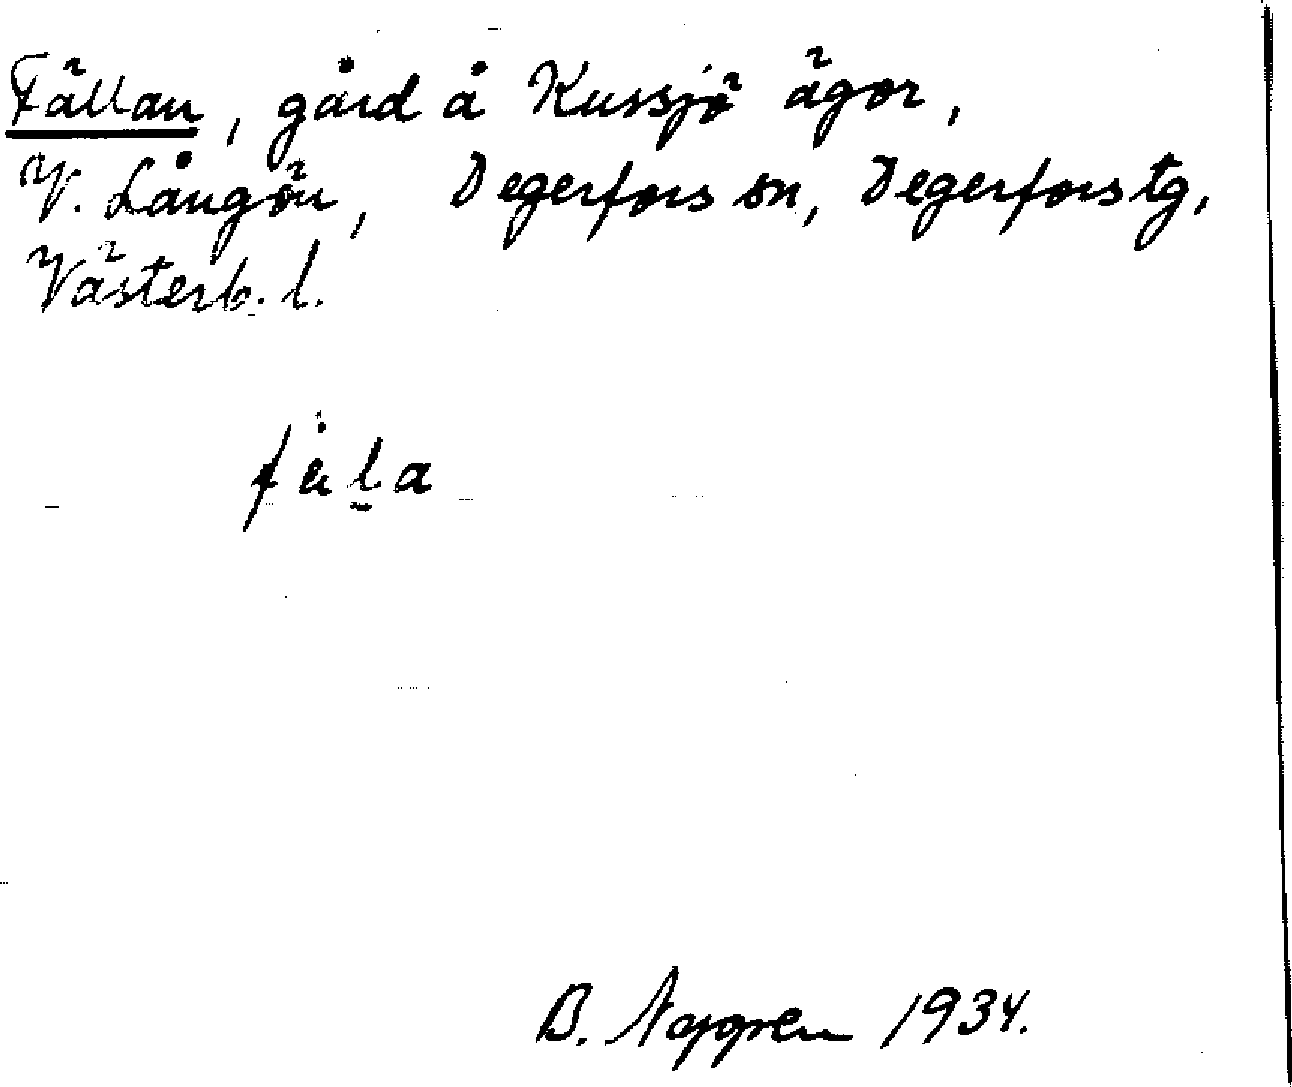 Fällan, gård å Kussjö ägor,
V. Långön, Degerfors sn, Degerfors tg,
Västerb. l.
fäla
B. 1934.